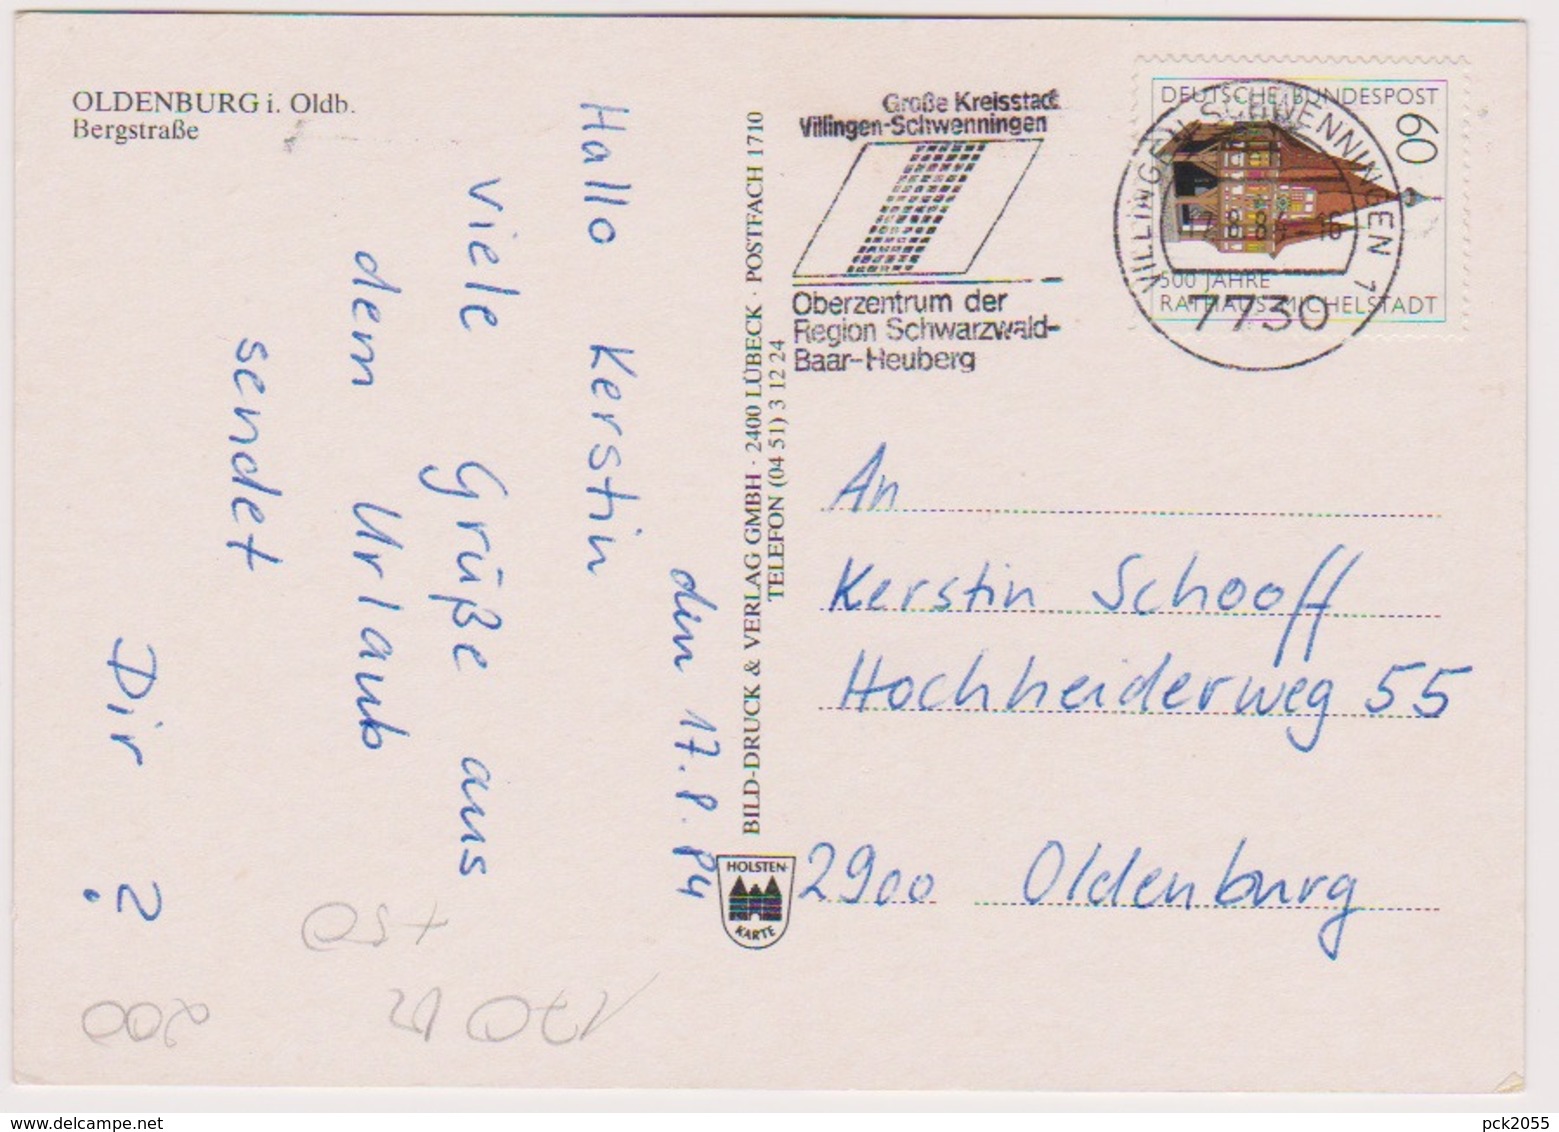 OLDENBURG i. Oldb.
Bergstraße
den 17.8.84
Hallo Kerstin
viele Grüße aus
dem Urlaub
sendet
Dir ?
+50
170
200
BILD-DRUCK & VERLAG GMBH · 2400 LÜBECK · POSTFACH 1710
TELEFON (04 51) 3 12 24
HOLSTEN-
KARTE
Große Kreisstadt
Villingen-Schwenningen
Oberzentrum der
Region Schwarzwald-
Baar-Heuberg
VILLINGEN-SCHWENNINGEN 1
17.8.84-16
7730
DEUTSCHE BUNDESPOST
60
500 JAHRE
RATHAUS MICHELSTADT
An
Kerstin Schooff
Hochheiderweg 55
2900 Oldenburg
pck2055